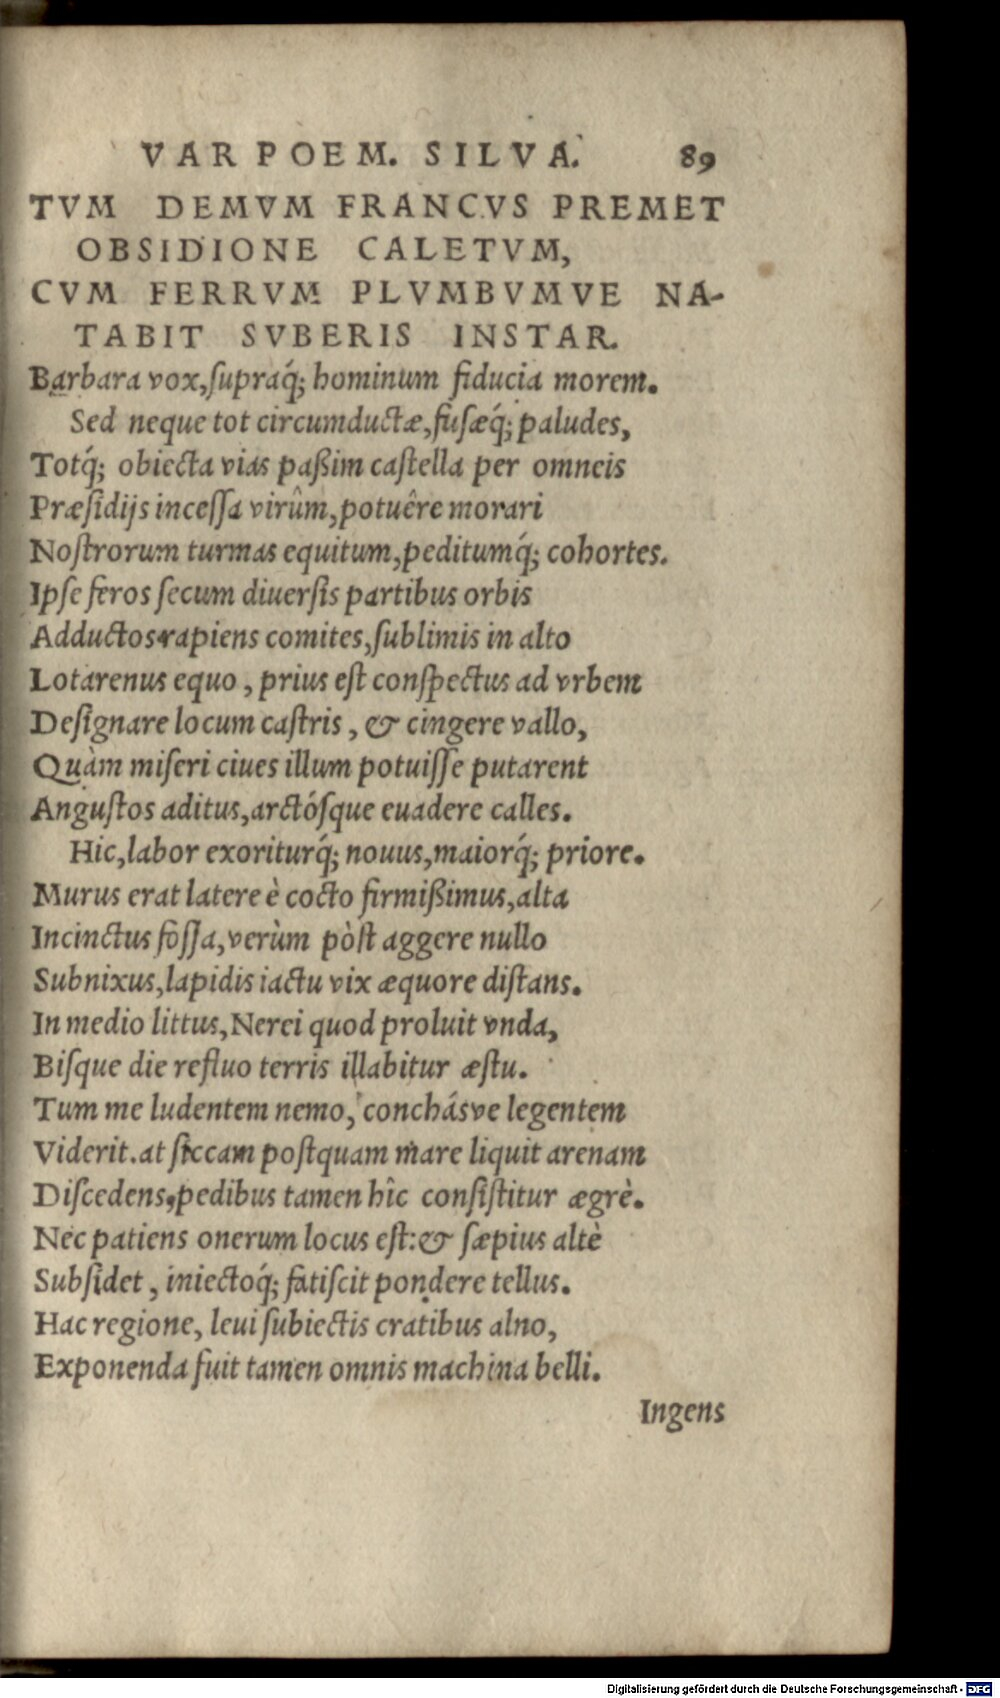 VAR POEM. SILVA. 89
TVM DEMVM FRANCVS PREMET
OBSIDIONE CALETVM,
CVM FERRVM PLVMBVMVE NA-
TABIT SVBERIS INSTAR.
Barbara vox, ſupraq́; hominum fiducia morem.
Sed neque tot circumductæ, fuſæq́; paludes,
Totq́; obiecta vias paßim caſtella per omneis
Præſidijs inceſſa virûm, potuêre morari
Noſtrorum turmas equitum, peditumq́; cohortes.
Ipſe feros ſecum diuerſis partibus orbis
Adductos rapiens comites, ſublimis in alto
Lotarenus equo, prius eſt conſpectus ad vrbem
Deſignare locum caſtris, & cingere vallo,
Quàm miſeri ciues illum potuiſſe putarent
Anguſtos aditus, arctósque euadere calles.
Hic, labor exoriturq́; nouus, maiorq́; priore.
Murus erat latere è cocto firmißimus, alta
Incinctus foſſa, verùm pòſt aggere nullo
Subnixus, lapidis iactu vix æquore diſtans.
In medio littus, Nerei quod proluit vnda,
Biſque die refluo terris illabitur æſtu.
Tum me ludentem nemo, conchásve legentem
Viderit. at ſiccam poſtquam mare liquit arenam
Diſcedens, pedibus tamen hîc conſiſtitur ægrè.
Nec patiens onerum locus eſt: & ſæpius altè
Subſidet, iniectoq́; fatiſcit pondere tellus.
Hac regione, leui ſubiectis cratibus alno,
Exponenda fuit tamen omnis machina belli.
Ingens
Digitalisierung gefördert durch die Deutsche Forschungsgemeinschaft - DFG